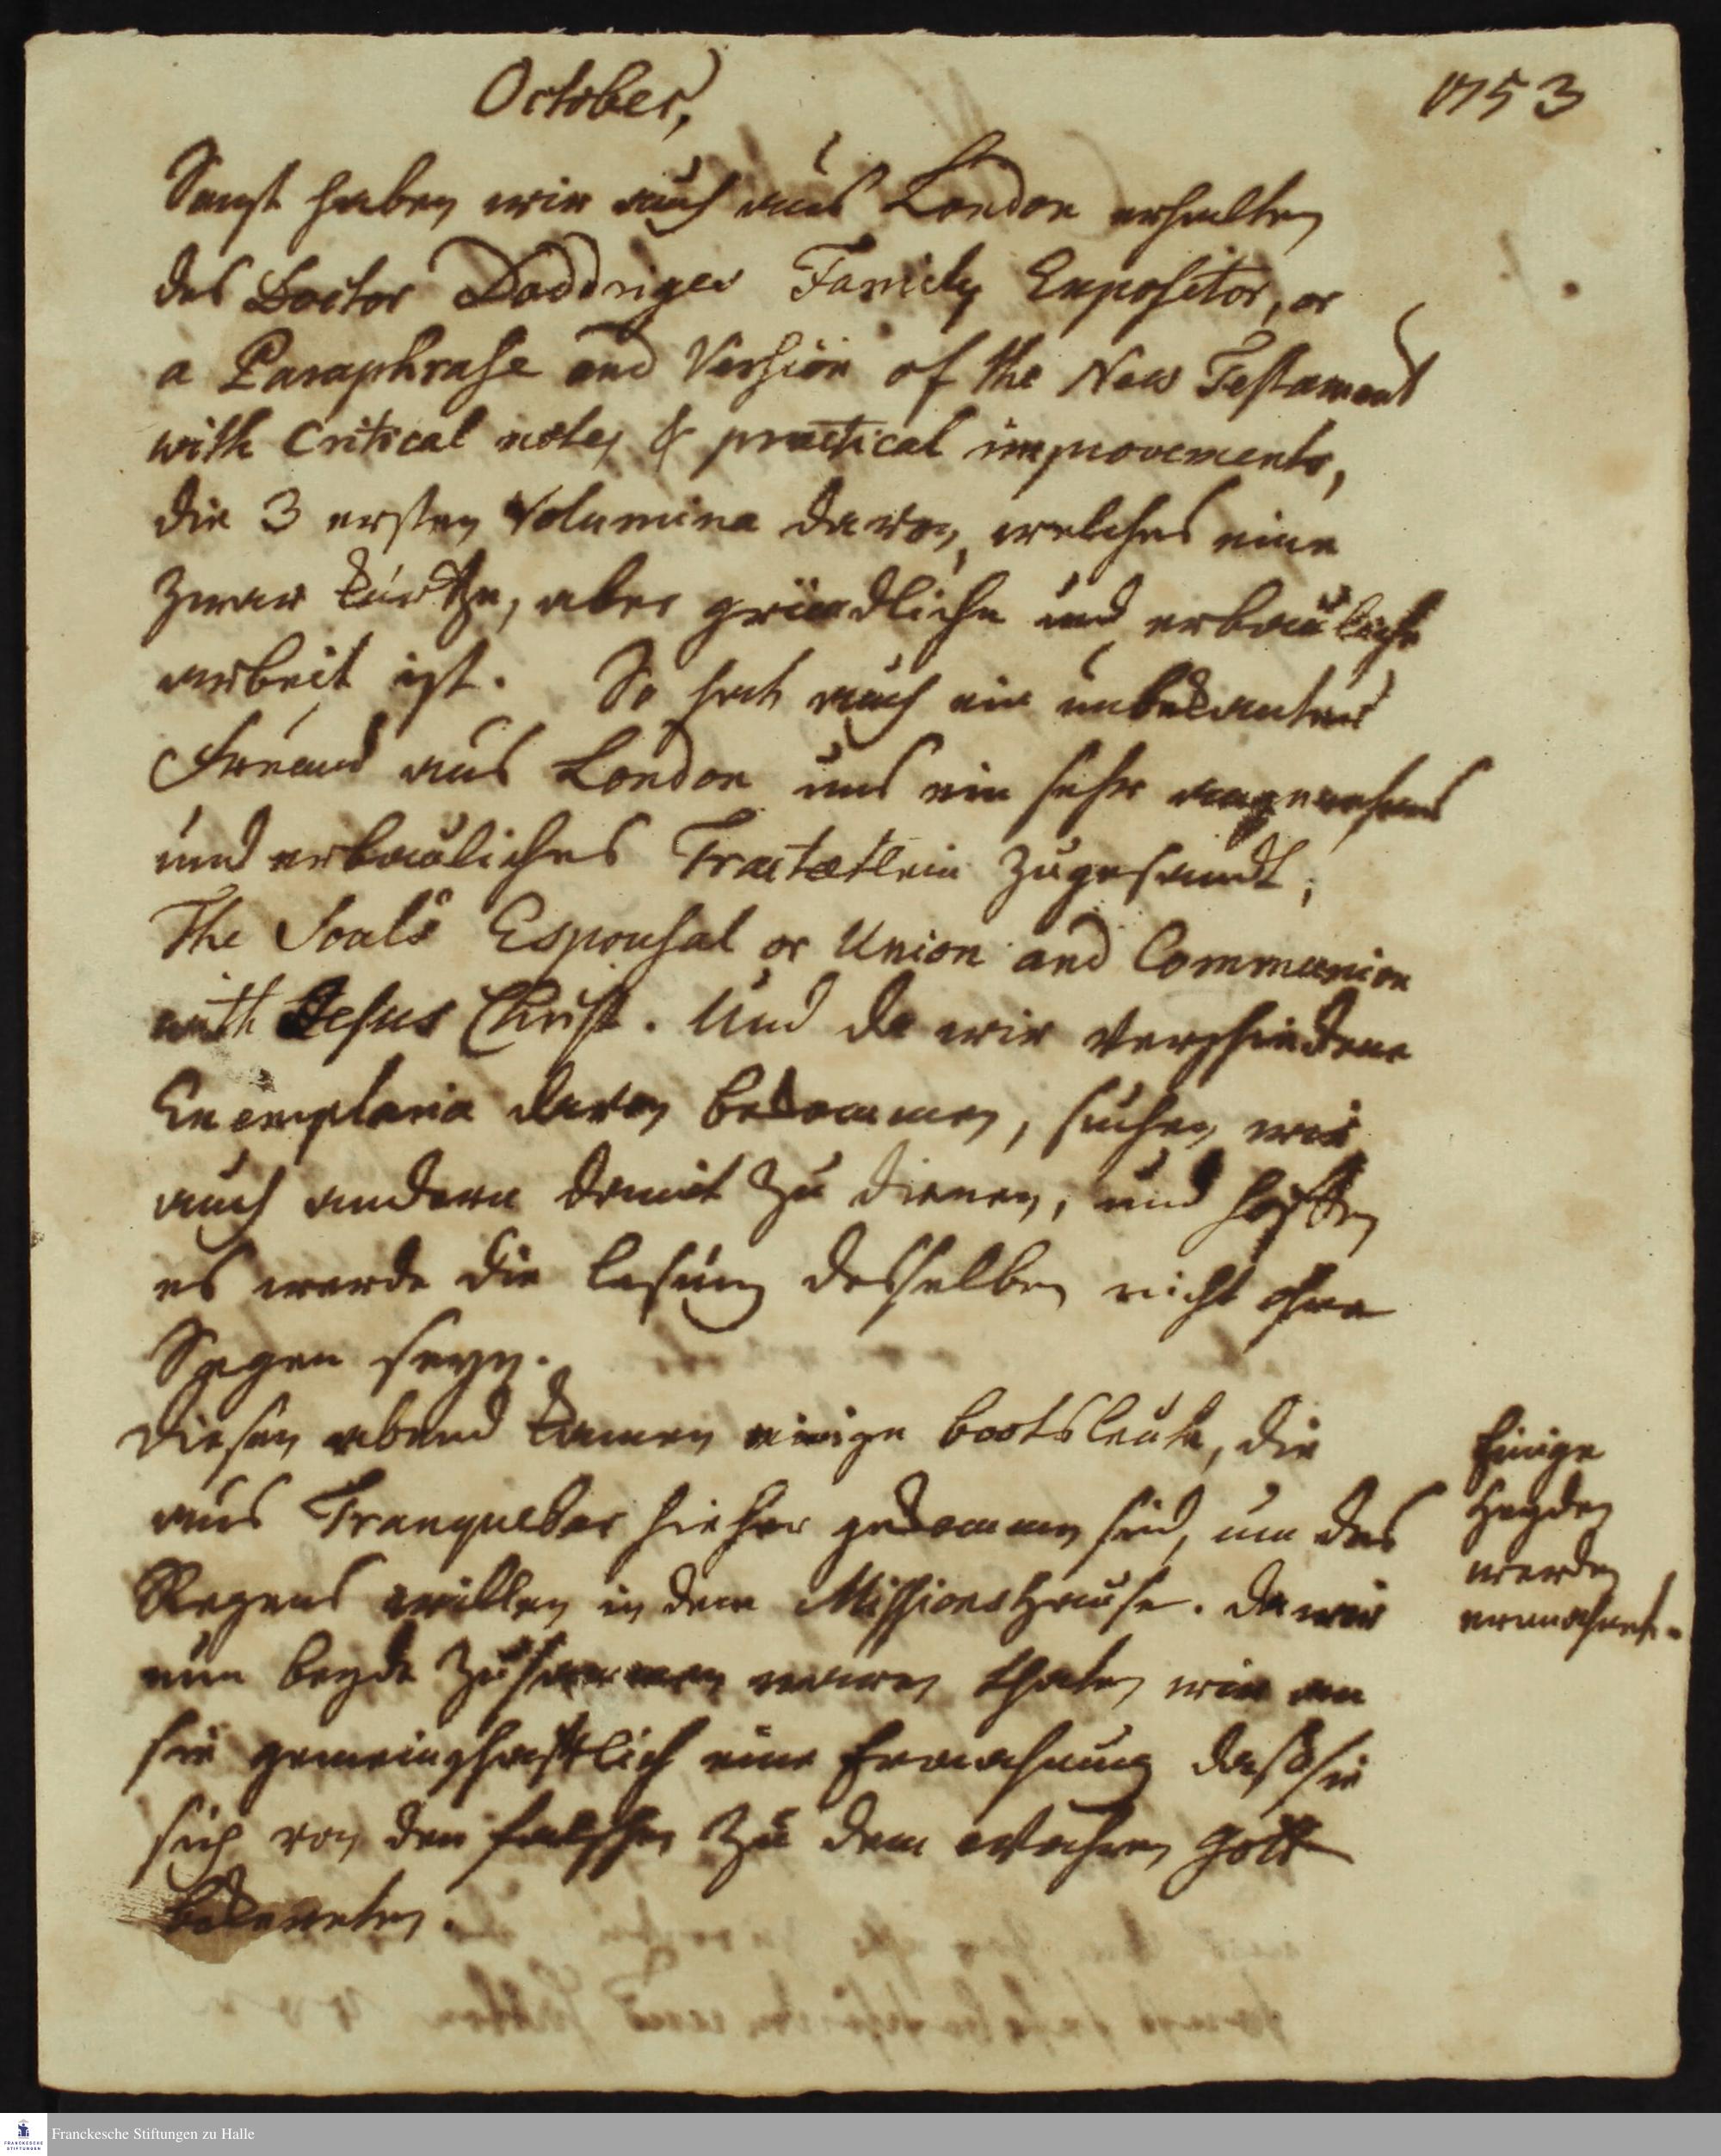 October,
1753
Sonst haben wir auch aus London erhalten
des Doctor Doddriges Family Expositor, or
a Paraphrase and Version of the New Testament
with Critical notes & practical improvements,
die 3 ersten Volumina davon, welches eine
zwar kurtze, aber gründliche und erbauliche
arbeit ist. So hat auch ein unbekanter
Freund aus London uns ein sehr angenehmes
und erbauliches Tractätlein zugesandt,
The Soals Espousal or Union and Communion
with Jesus Christ. Und da wir verschiedene
Exemplaria davon bekommen, suchen wir
auch andern damit zu dienen, und hoffen
es werde die lesung desselben nicht ohne
Segen seyn.
Diesen abend kamen einige bootsleute, die
aus Tranquebar hieher gekommen sind, um des
Regens willen in dem Missionshause. Da wir
nun beyde zusammen waren thaten wir an
sie gemeinschaftlich eine Ermahnung daß sie
sich von den falschen zu dem wahren Gott
bekehrten.
Einige
Heyden
werden
ermahnet.
Franckesche Stiftungen zu Halle